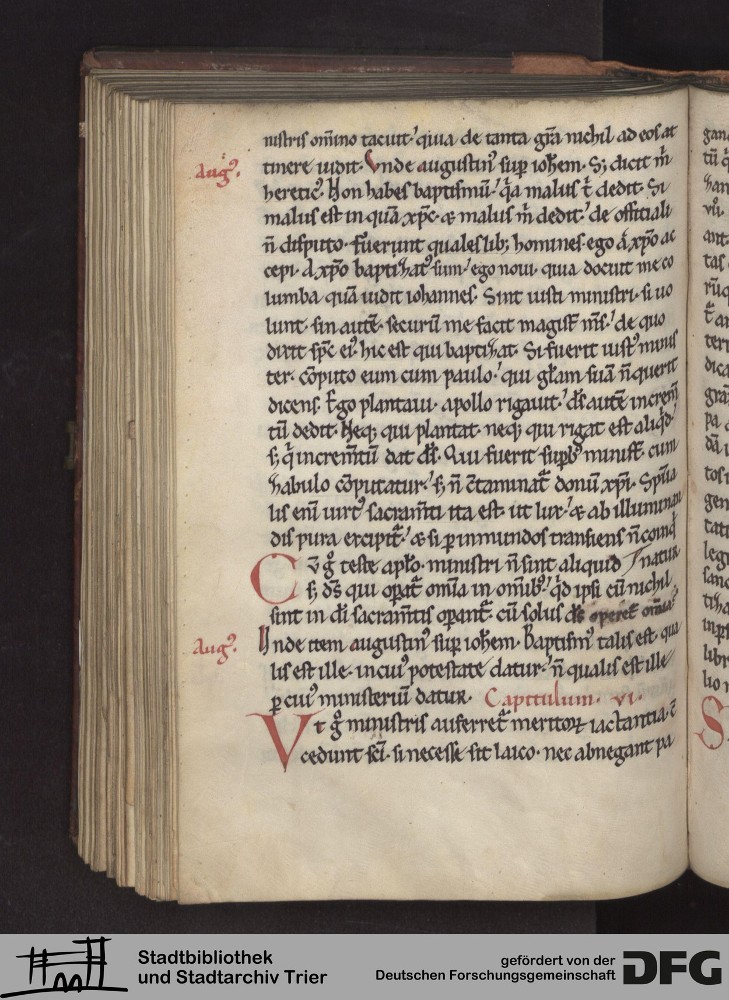 nistris om̅ino tacuit· quia de tanta gr̅a nichil ad eos at
Aug᷒.
tinere uidit· Vnde augustin᷒ sup̱ ioh̅em· S; dicit m̅
heretic᷒· Non habes baptismu̅· q̅a malus t̅ dedit· Si
malus est in qua̅ xp̅c· & malus m̅ dedit· de officiali
n̅ disputo· fuerunt quales lib; homines· ego a xp̅o ac
cepi· A xp̅o baptizat᷒ sum· ego noui· quia docuit me co
lumba qua̅ uidit iohannes· Sint iusti ministri· si uo
lunt· sin aute̅· securu̅ me facit magist̅ m̅s· de quo
dixit sp̅c ei᷒· hic est qui baptizat· Si fuerit iust᷒ minis
ter· co̅puto eum cum paulo· qui gl̅am sua̅ n̅ querit
dicens· Ego plantaui· apollo rigauit· d̅s aute̅ increm̅
tu̅ dedit· Neq; qui plantat neq; qui rigat est aliq̅d·
s; q̅ increm̅tu̅ dat d̅s· Qui fuerit sup̱b᷒ minist̅· cum
zabulo co̅putatur· s; n̅ c̅taminat̅ donu̅ xp̅i· Sp̅ita
lis eni̅ uirt᷒ sacram̅ti ita est ut lux· & ab illuminan
dis pura excipit̅· & si p̱ inmundos transiens n̅ coinq̅
natur
Cu̅ g̊ teste ap̅lo· ministri n̅ sint aliquid
s; d̅s qui op̱at̅ om̅ia in om̅ib᷒· q̅d ipsi cu̅ nichil
sint in d̅i sacram̅tis op̱ant̅· cu̅ solus d̅s operet̅ om̅ia·
Aug᷒.
Vnde item augustin᷒ sup̱ ioh̅em· Baptism᷒ talis est· qua
lis est ille· in cui᷒ potestate datur· n̅ qualis est ille
p̱ cui᷒ ministeriu̅ datur· Capitulum· vi·
Vt g̊ ministris auferret̅ meritoꝝ iactantia· c̅
cedunt sc̅i· si necesse sit laico· nec abnegant pa
Stadtbibliothek
und Stadtarchiv Trier
gefördert von der
Deutschen Forschungsgemeinschaft
DFG